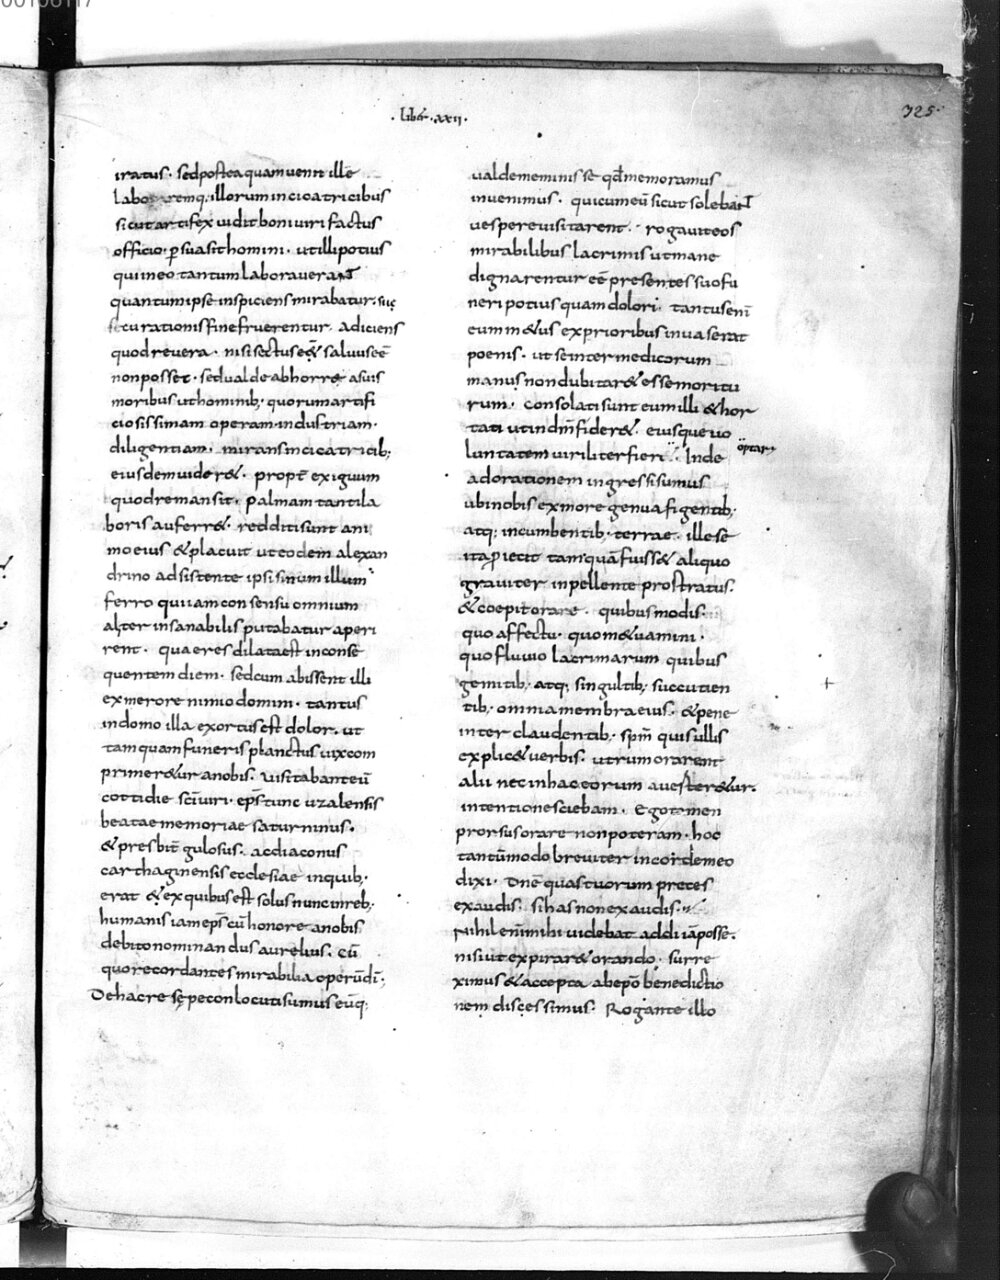 00106117
· lib̄ · xxii ·
325
iratus · sedposteaquamvenit ille
laboremq; illorum incicatricibus
sicutartifex vidit boniviri factus
officio · p̱suasithomini · utillipotius
quiineo tantum laboraverant
quantumipse inspiciens mirabatur · suę
curationisfinefruerentur · adiciens
quodrevera · nisisectusess& salvusēē
nonposset · sedvaldeabhorrere asuis
moribus uthominib; quorumartifi
ciosissimam operam · industriam ·
diligentiam · miransincicatricib;
eiusdemvider& · propt̄ exiguum
quodremansit · palmam tantila
boris auferr& · redditisunt ani
moeius &placuit uteodem alexan
drino adsistente ipsisinum illum
ferro quiiamconsensu omnium
aliter insanabilis putabatur aperi
rent · quaeres dilataest inconse
quentem diem · sedcum abissent illi
exmerore nimiodomini · tantus
indomo illa exortusest dolor · ut
tamquamfuneris planctus vixcom
primer&ur anobis · visitabanteū
cottidie scīviri · ep̄s tunc uzalensis
beataememoriae saturninus ·
&presbit̄ gulosus · acdiaconus
carthaginensis ecclesiae inquib;
erat &exquibus est solus nunc inreb;
humanis iamep̄s cū honore anobis
debitonominandus aurelius · Cū
quorecordantes mirabilia operūdī ·
Dehacre sępeconlocutisumus eūq;
valdememinisse qd̄memoramus
invenimus · quicumeū sicut solebant
vesperevisitarent · rogaviteos
mirabilibus lacrimis utmane
dignarentur ēē presentes suofu
neri potius quamdolori · tantusenī
eum m&us exprioribus invaserat
poenis · ut seinter medicorum
manus nondubitar& essemoritu
rum · Consolatisunt eumilli &hor
tati utindn̄fider& · eiusquevo
luntatem viriliterfieri · Inde
optar&
adorationem ingressisumus
ubinobis exmore genua figentib;
atq; incumbentib; terrae · illese
itap̱iecit tamquāfuiss& aliquo
graviter inpellente prostratus ·
&coepitorare · quibusmodis ·
quo affectu · quom&uanimi ·
quo fluvio lacrimarum quibus
gemitib; atq; singultib; succutien
tib; omniamembraeius · &pene
inter claudentib; spm̄ quisullis
explic&verbis · utrumorarent
alii necinhaceorum avester&ur ·
intentionesciebam · Egotamen
prorsusorare nonpoteram · hoc
tantūmodo breviter incordemeo
dixi · Dn̄e quas tuorum preces
exaudis · sihas nonexaudis ·
Nihilenimmihi videbat addi iāposse ·
nisiutexpirar& orando · surre
ximus &accepta abep̄o benedictio
nem discessimus · Rogante illo